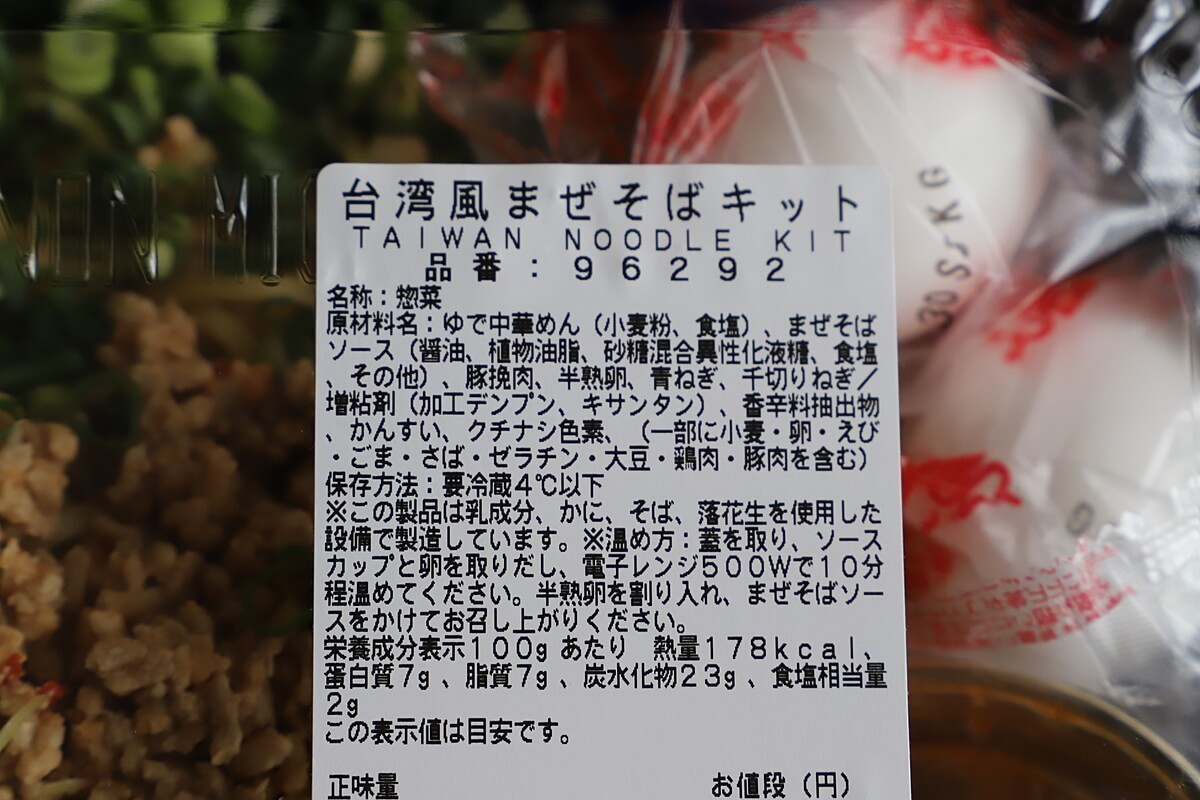 台湾風まぜそばキット
TAIWAN NOODLE KIT
品番：96292
名称：惣菜
原材料名：ゆで中華めん（小麦粉、食塩）、まぜそば
ソース（醤油、植物油脂、砂糖混合異性化液糖、食塩
、その他）、豚挽肉、半熟卵、青ねぎ、千切りねぎ／
増粘剤（加工デンプン、キサンタン）、香辛料抽出物
、かんすい、クチナシ色素、（一部に小麦・卵・えび
・ごま・さば・ゼラチン・大豆・鶏肉・豚肉を含む）
保存方法：要冷蔵4℃以下
※この製品は乳成分、かに、そば、落花生を使用した
設備で製造しています。※温め方：蓋を取り、ソース
カップと卵を取りだし、電子レンジ500Wで10分
程温めてください。半熟卵を割り入れ、まぜそばソー
スをかけてお召し上がりください。
栄養成分表示100gあたり　熱量178kcal、
蛋白質7g、脂質7g、炭水化物23g、食塩相当量
2g
この表示値は目安です。
正味量 お値段（円）